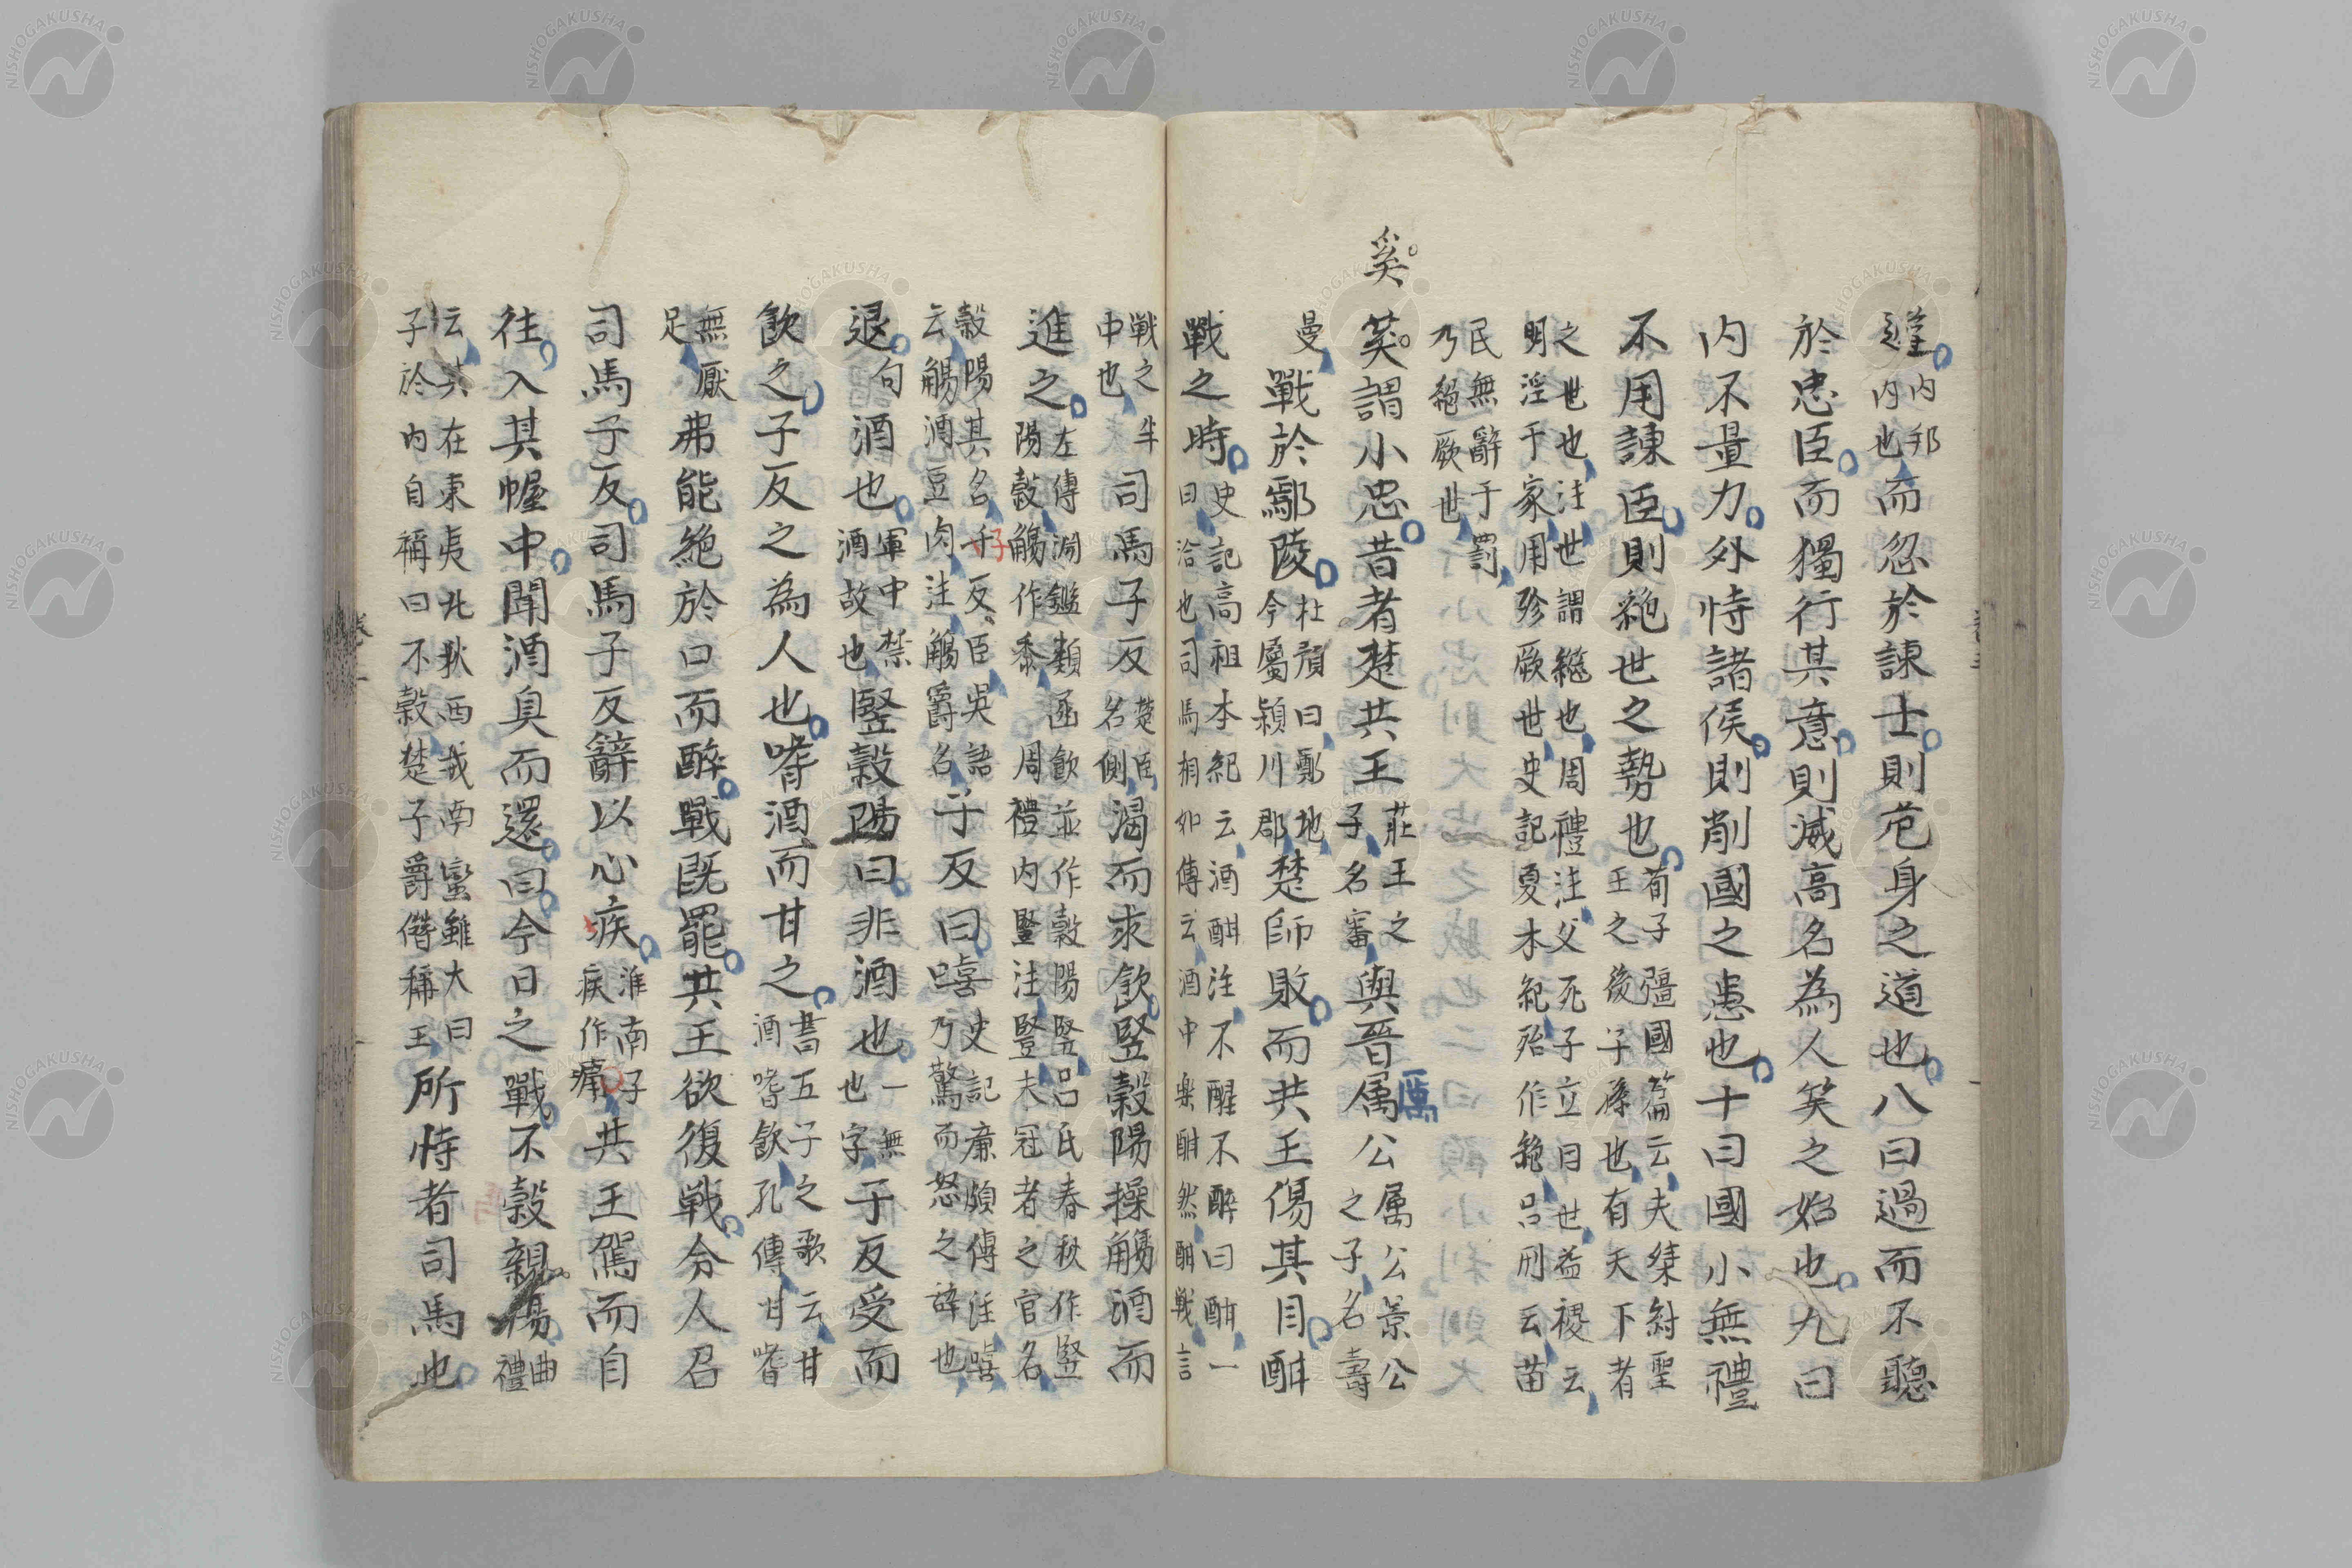 遠内邦内也而忽於諫士則危身之道也八曰過而不聽
於忠臣而獨行其意則滅高名為人笑之始也九曰
内不量力外恃諸侯則削國之患也十曰國小無禮
不用諫臣則絶世之勢也荀子彊國篇云夫桀紂聖王之後子孫也有天下者
之世也注世謂繼也周禮注父死子立曰世益稷云明淫于家用殄厥世史記夏本紀殄作絶呂刑云苗
民無辭于罰乃絶厥世
奚
奚謂小忠昔者楚共王莊王之子名審與晉厲公厲公景公之子名壽
曼
戰於鄢陵杜預曰鄭地今屬潁川郡楚師敗而共王傷其目酣
戰之時史記高祖本紀云酒酣注不醒不醉曰酣一曰洽也司馬相如傳云酒中樂酣然酣戰言
戰之半中也司馬子反楚臣名側渴而求飲豎穀陽操觴酒而
進之左傳淵鑑類函飲並作穀陽豎呂氏春秋作豎陽穀觴作黍周禮内豎注豎夫冠者之官名
穀陽其名子反臣吳語云觴酒豆肉注觴爵名子反曰嘻史記廉頗傳注嘻乃驚而怒之辭也
退句酒也軍中禁酒故也豎穀陽曰非酒也一無也字子反受而
飲之子反之為人也嗜酒而甘之書五子之歌云甘酒嗜飲孔傳甘嗜
無厭足弗能絶於口而醉戰既罷共王欲復戰令人召
司馬子反司馬子反辭以心疾淮南子疾作痛共王駕而自
往入其幄中聞酒臭而還曰今日之戰不穀親傷曲禮
云其在東夷北狄西戎南蠻雖大曰子於内自稱曰不穀楚子爵僭稱王所恃者司馬也
NISHOGAKUSHA